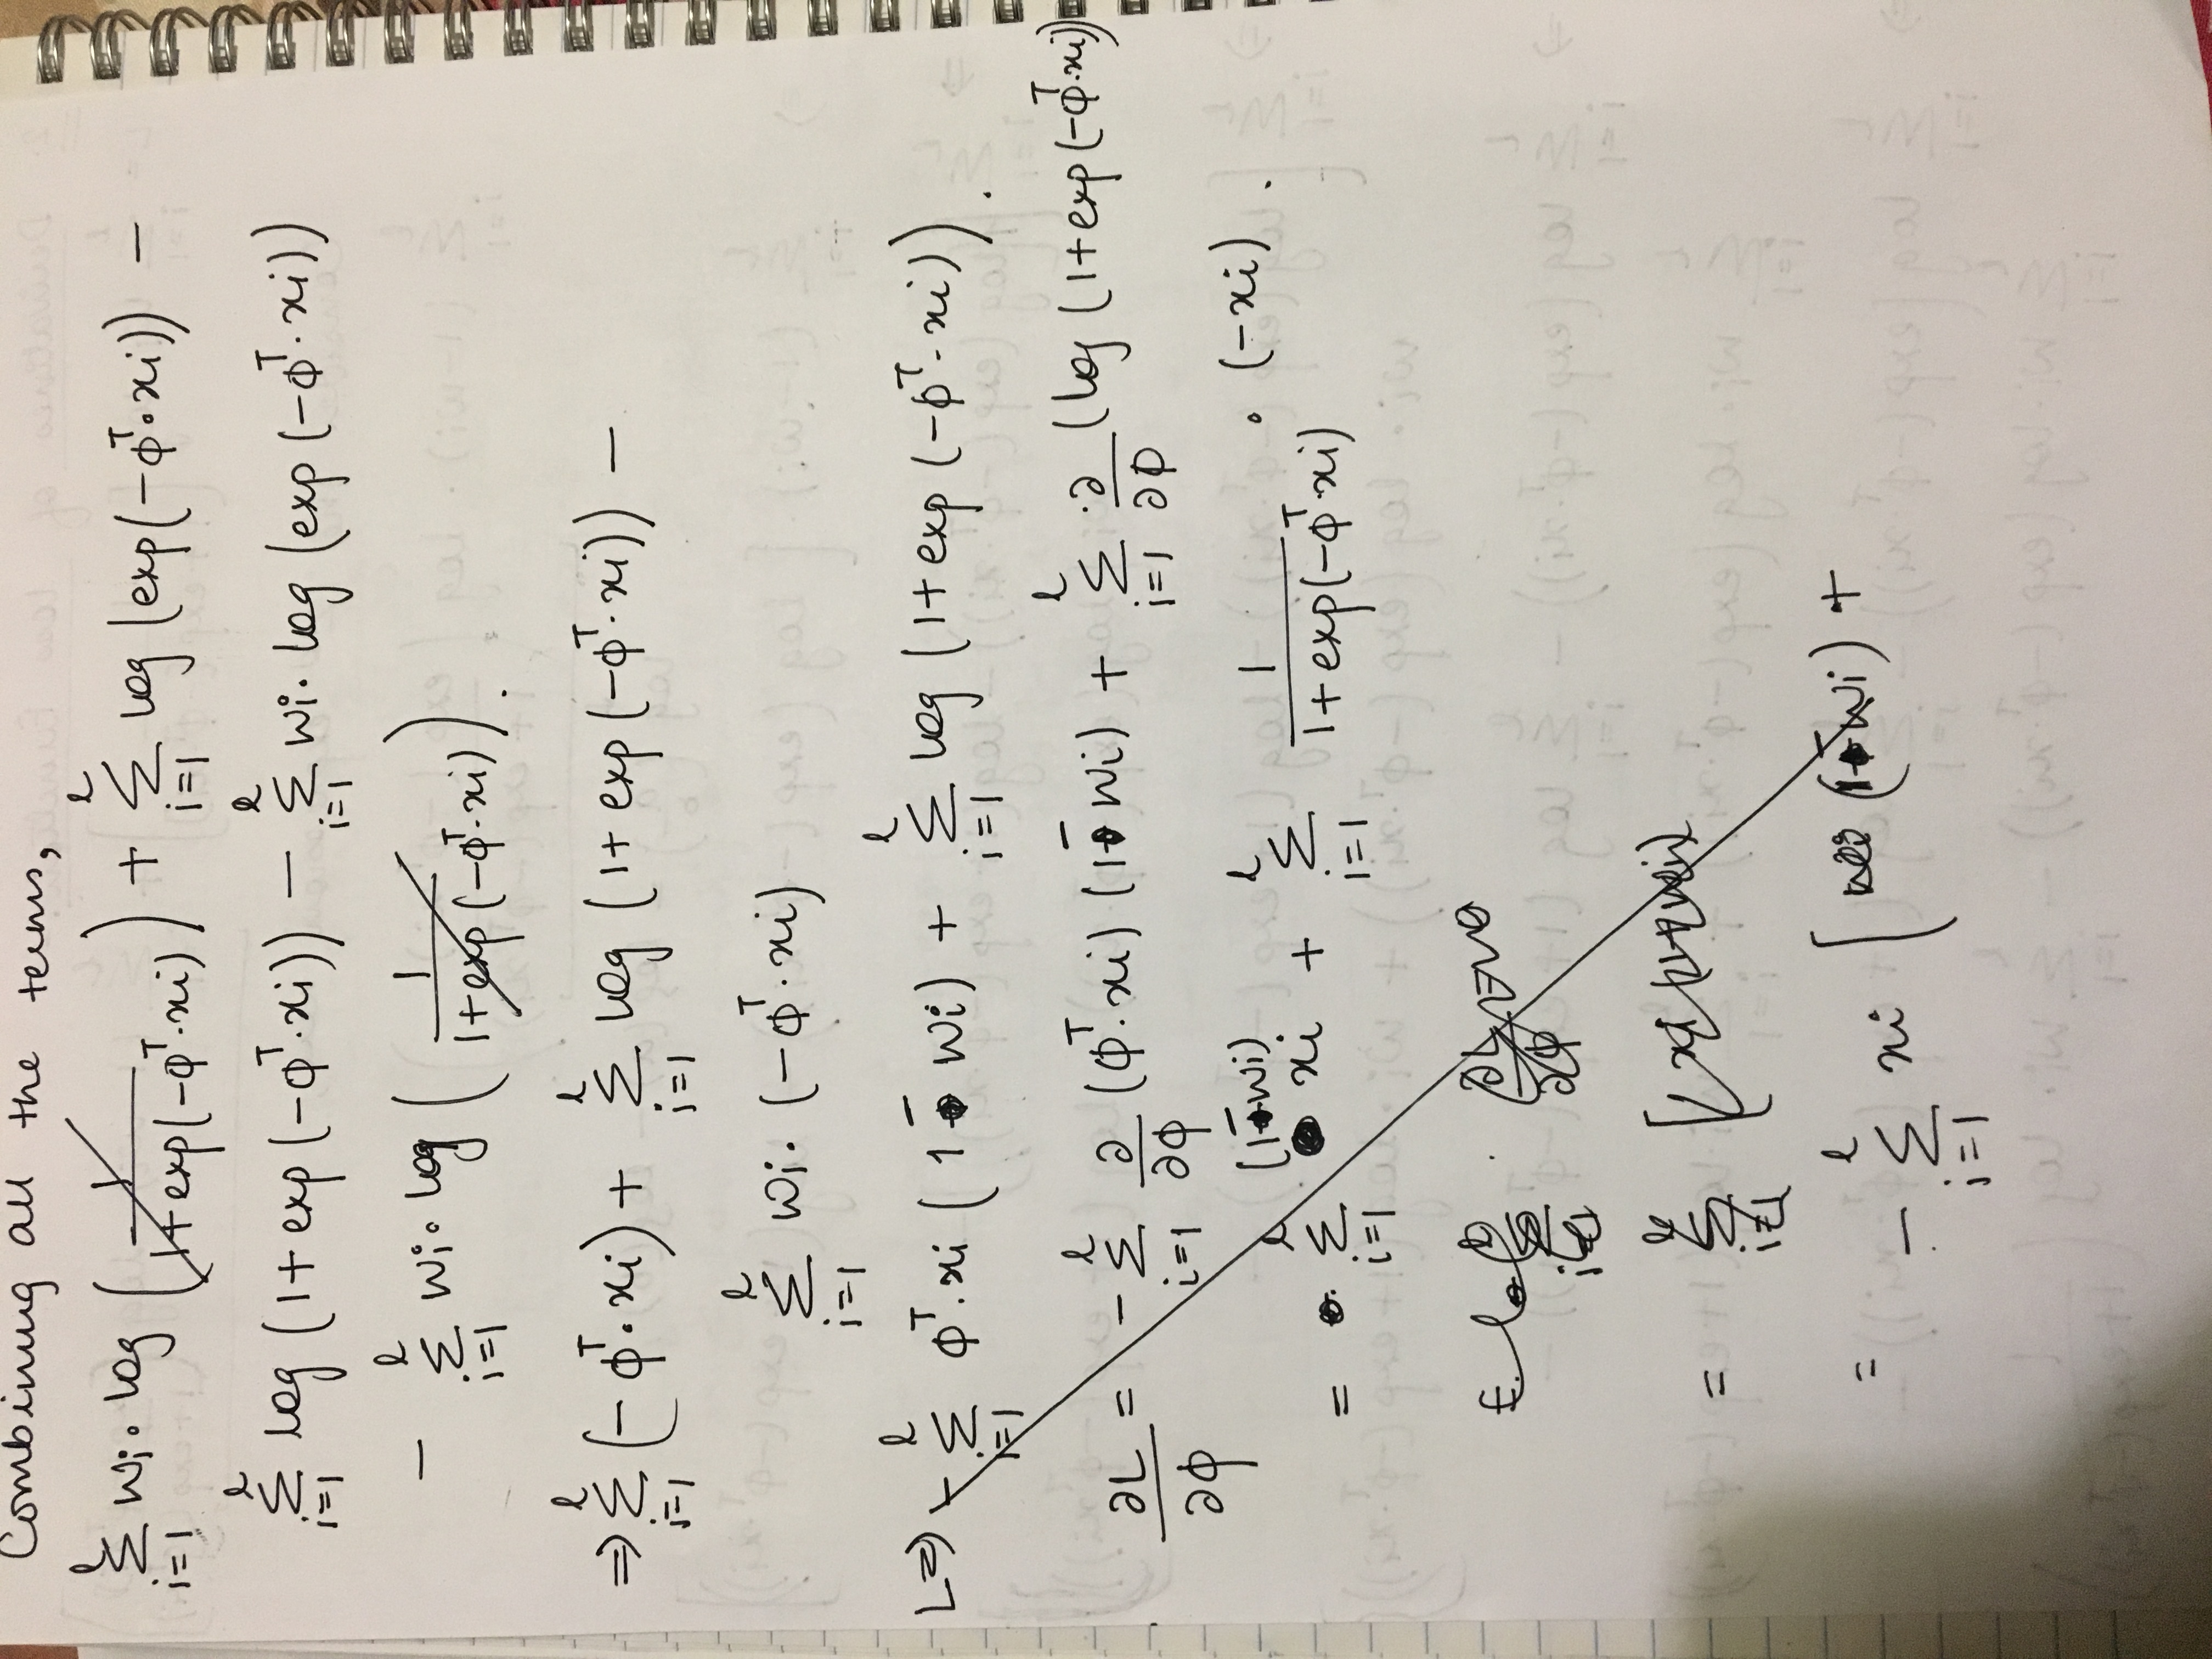 Combining all the terms,
l∑i=1 wi · log (1 / 1+exp(-φᵀ·xi)) + l∑i=1 log (exp(-φᵀ·xi)) -
l∑i=1 log (1+ exp (-φᵀ·xi)) - l∑i=1 wi· log (exp (-φᵀ·xi))
- l∑i=1 wi· log (1 / 1+exp (-φᵀ·xi)).
⇒ l∑i=1 (- φᵀ·xi) + l∑i=1 log (1+ exp (-φᵀ·xi)) -
l∑i=1 wi· (-φᵀ·xi)
L⇒ - l∑i=1 φᵀ·xi (1 - wi) + l∑i=1 log (1+exp (-φᵀ·xi)).
∂L/∂φ = - l∑i=1 ∂/∂φ (φᵀ·xi) (1 - wi) + l∑i=1 ∂/∂φ (log (1+exp(-φᵀ·xi))
= l∑i=1 (1 - wi) xi + l∑i=1 1 / 1+exp(-φᵀ·xi) · (-xi).
∂L/∂φ = 0
= l∑i=1 [ xi (1+wi)
= - l∑i=1 xi [ (1 - wi) +